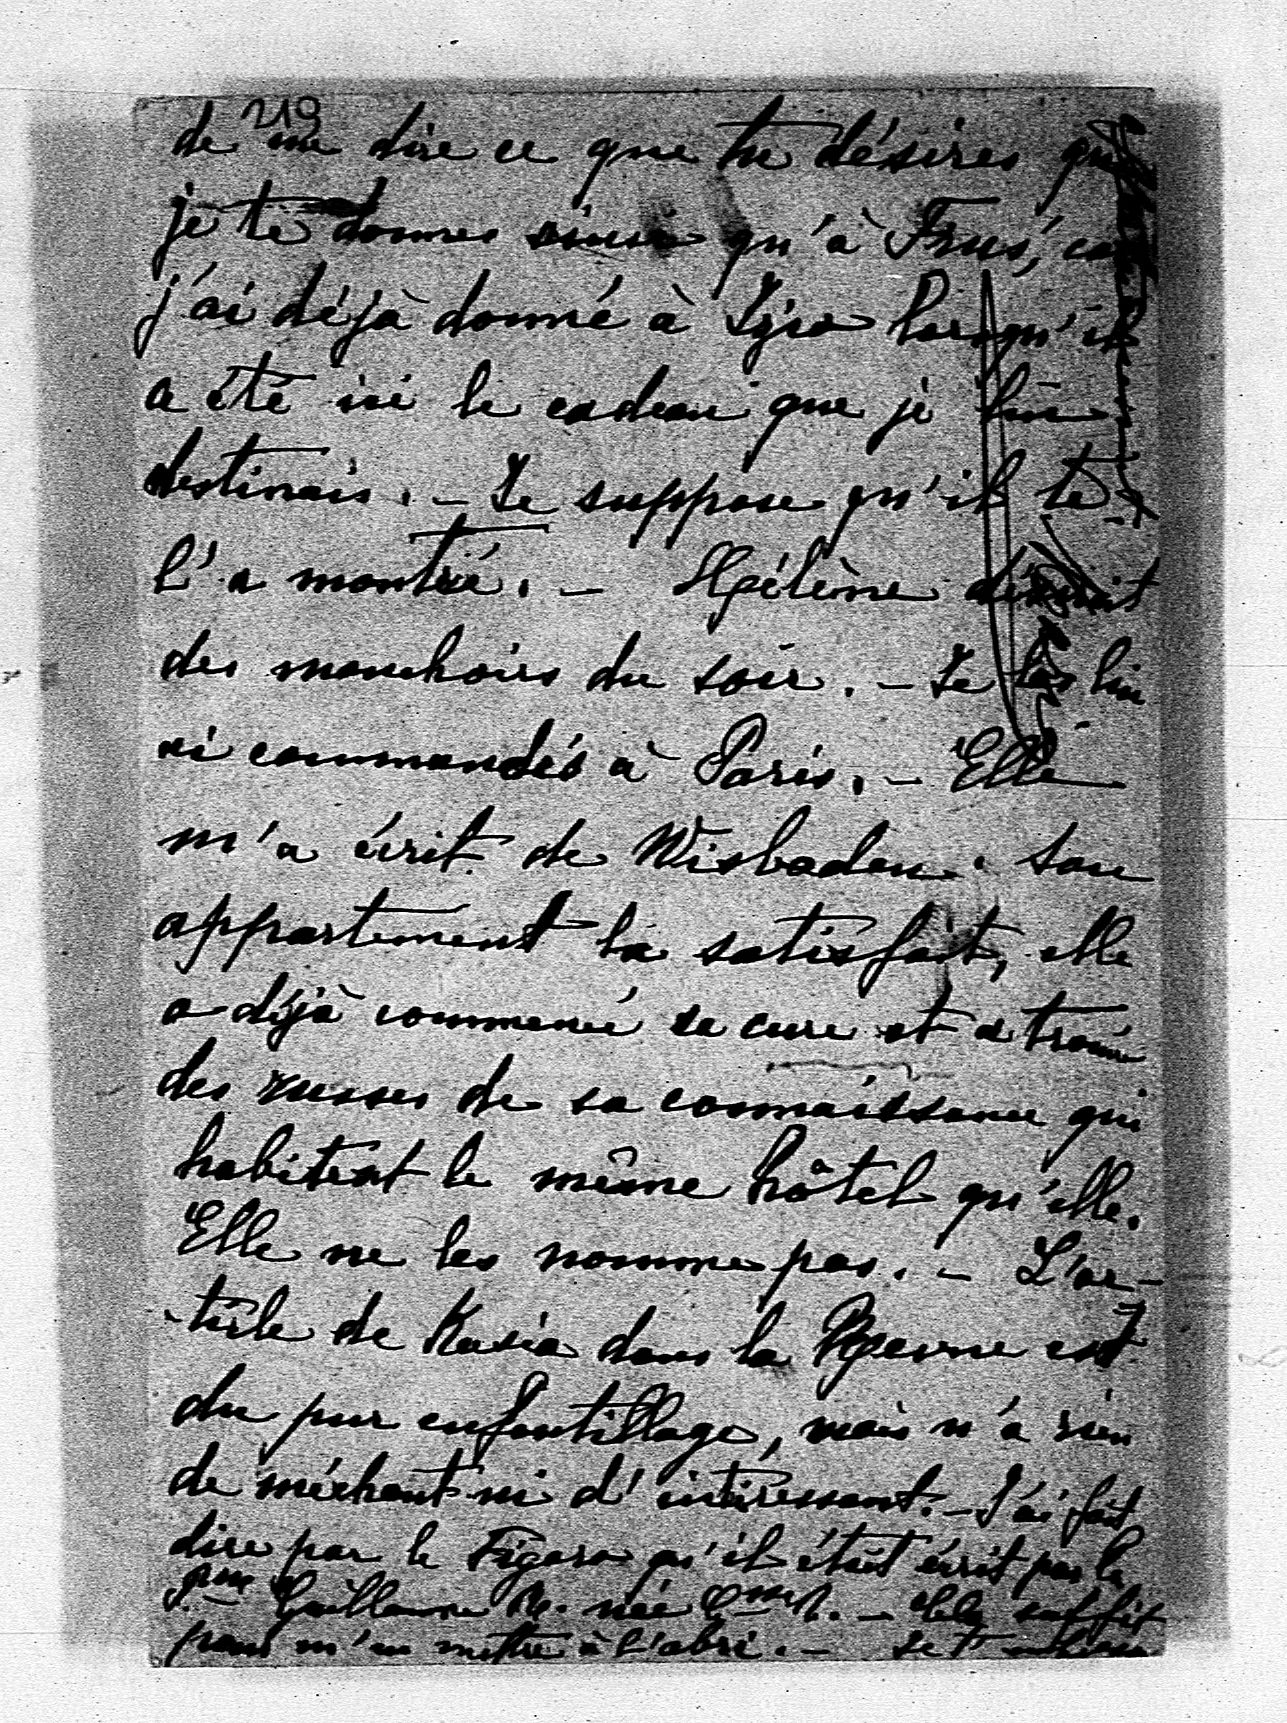 219
de me dire ce que tu désires que
je te donnes ainsi qu'à Frus, car
j'ai déjà donné à Sgio lorsqu'il
a été ici le cadeau que je lui
destinais. – Je suppose qu'il te
l'a montré. – Hélène désirait
des mouchoirs du soir. – Je les lui
ai commandés à Paris. – Elle
m'a écrit de Wisbaden. Son
appartement la satisfait, elle
a déjà commencé sa cure et a trouvé
des russes de sa connaissance qui
habitent le même hôtel qu'elle.
Elle ne les nomme pas. – L'ar-
-ticle de Kasia dans la Revue est
du pur enfantillage, mais n'a rien
de méchant ni d'intéressant. – J'ai fait
dire par le Figaro qu'il était écrit par la
Pce Guillaume R. née – Cela suffit
pour m'en mettre à l'abri. – Je t'embrasse